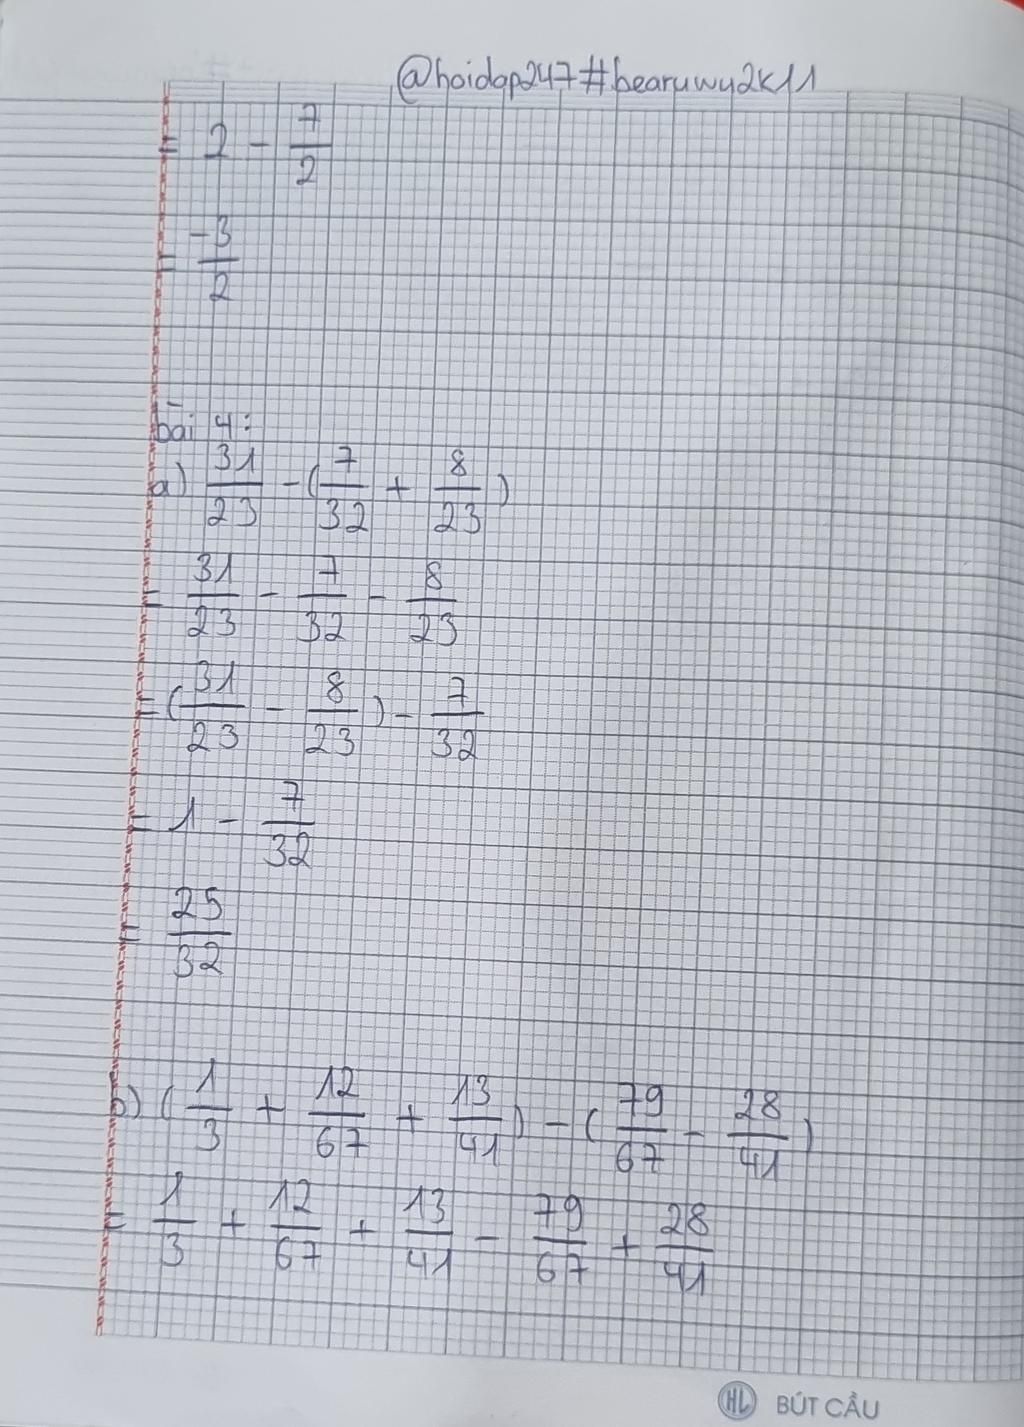 @hoidap247#bearuwu2k11
= 2 - 7/2
= -3/2
bài 4:
a) 31/23 - (7/32 + 8/23)
= 31/23 - 7/32 - 8/23
= (31/23 - 8/23) - 7/32
= 1 - 7/32
= 25/32
b) (1/3 + 12/67 + 13/41) - (79/67 - 28/41)
= 1/3 + 12/67 + 13/41 - 79/67 + 28/41
HL BÚT CẦU